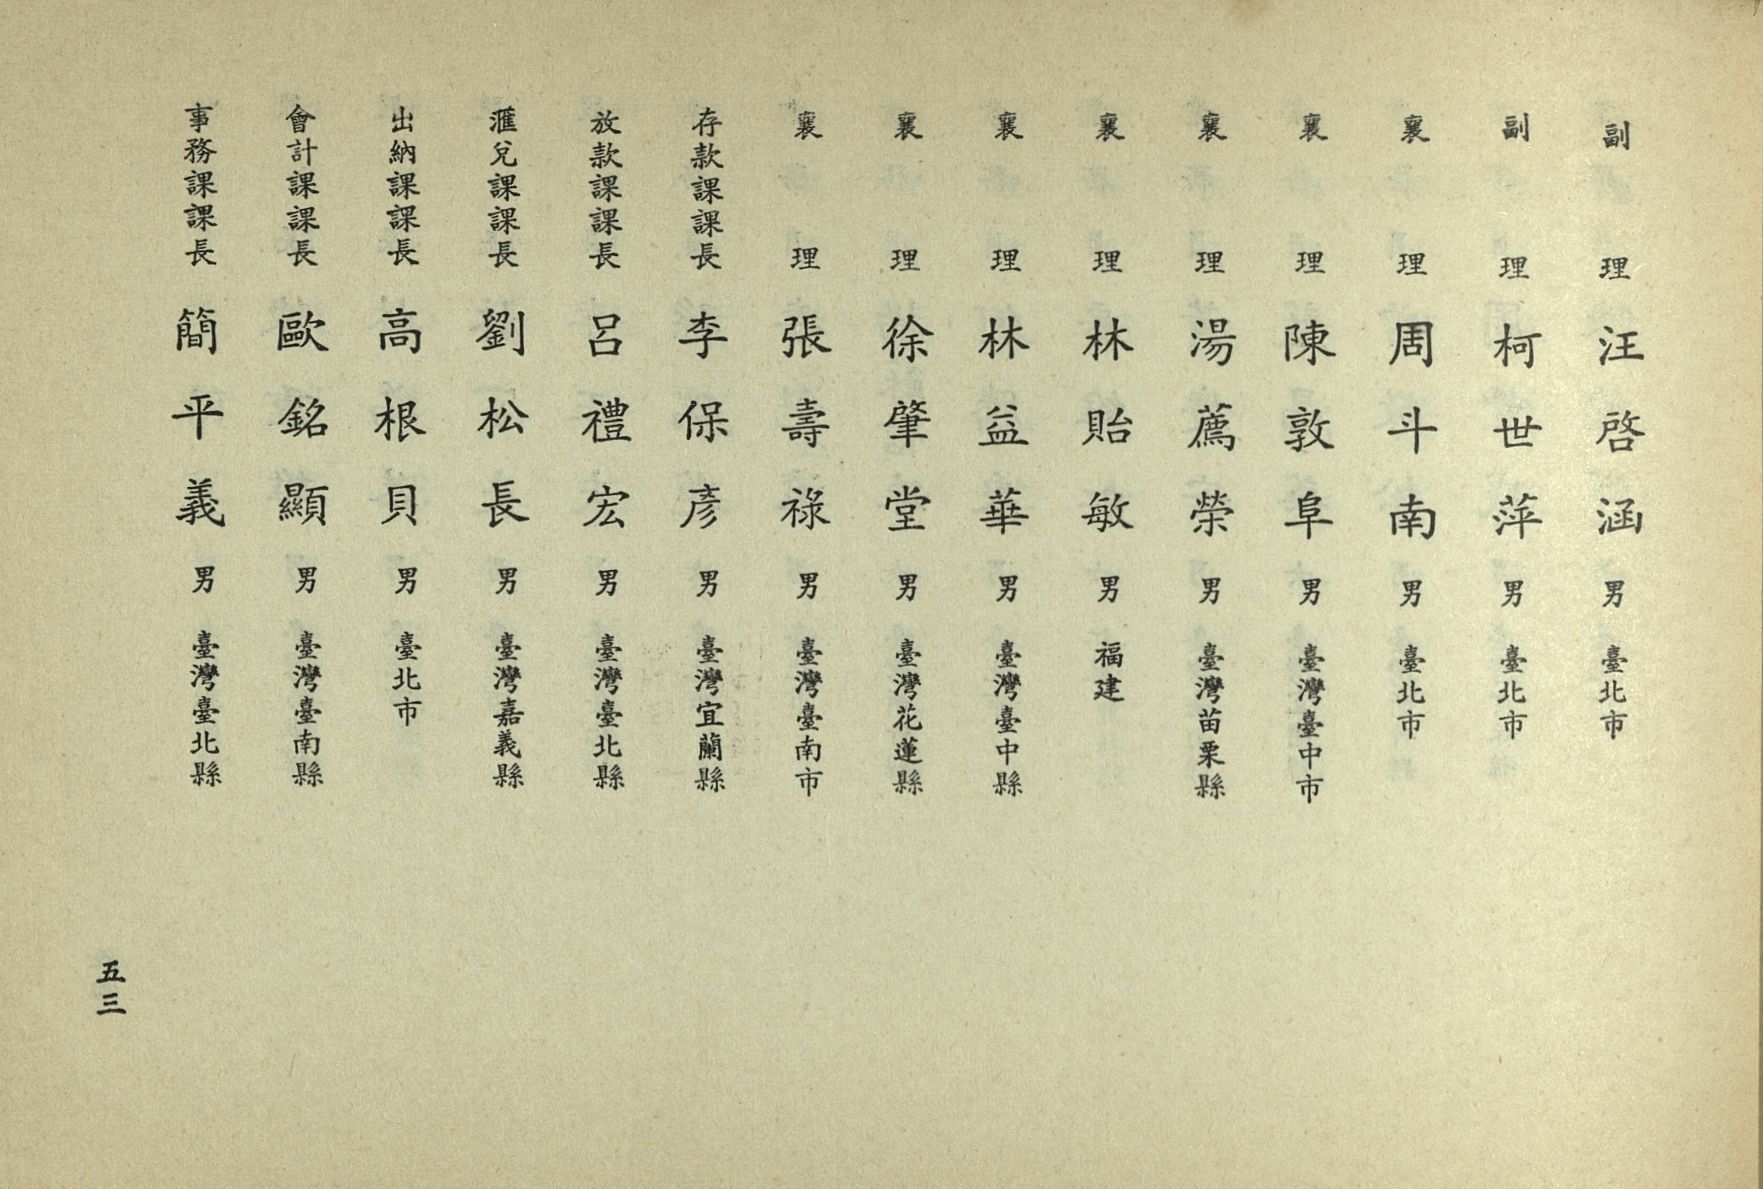 副理 汪啓涵 男 臺北市
副理 柯世萍 男 臺北市
襄理 周斗南 男 臺北市
襄理 陳敦阜 男 臺灣臺中市
襄理 湯薦榮 男 臺灣苗栗縣
襄理 林貽敏 男 福建
襄理 林益華 男 臺灣臺中縣
襄理 徐肇堂 男 臺灣花蓮縣
襄理 張壽祿 男 臺灣臺南市
存款課課長 李保彥 男 臺灣宜蘭縣
放款課課長 呂禮宏 男 臺灣臺北縣
滙兌課課長 劉松長 男 臺灣嘉義縣
出納課課長 高根貝 男 臺北市
會計課課長 歐銘顯 男 臺灣臺南縣
事務課課長 簡平義 男 臺灣臺北縣
五三